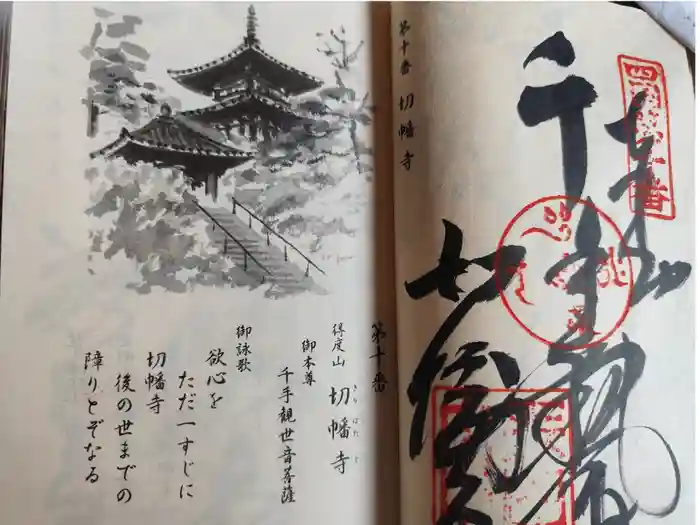 四国第十番
奉拝
千手
切幡
第十番 切幡寺
第十番
得度山 切幡寺
きりはたじ
御本尊
千手観世音菩薩
御詠歌
欲心を
ただ一すじに
切幡寺
後の世までの
障りとぞなる